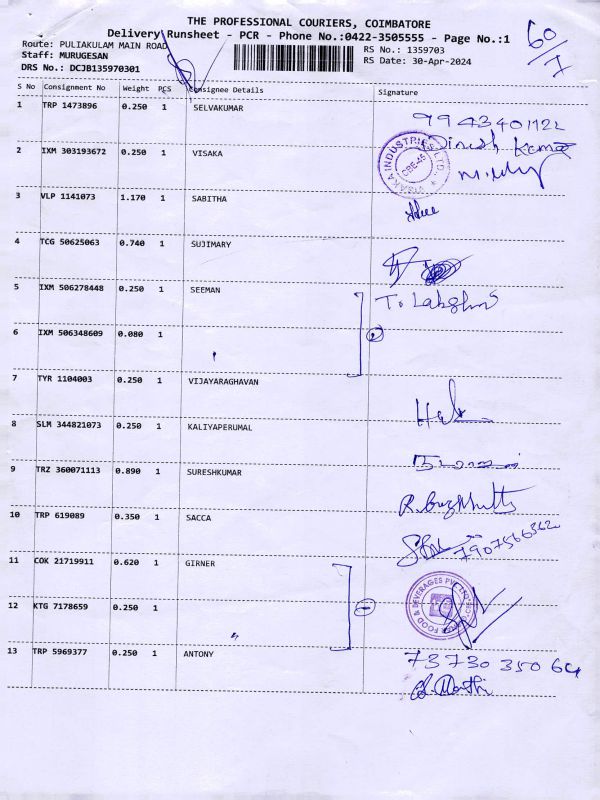 THE PROFESSIONAL COURIERS, COIMBATORE
Delivery Runsheet - PCR - Phone No.:0422-3505555 - Page No.:1
60/1
Route: PULIAKULAM MAIN ROAD
RS No.: 1359703
Staff: MURUGESAN
RS Date: 30-Apr-2024
DRS No.: DCJB135970301
S No Consignment No Weight PCS Consignee Details Signature
1 TRP 1473896 0.250 1 SELVAKUMAR
Dinesh Kumar
2 IXM 303193672 0.250 1 VISAKA
VISAKA INDUSTRIES LTD. CBE-45
3 VLP 1141073 1.170 1 SABITHA
4 TCG 50625063 0.740 1 SUJIMARY
5 IXM 506278448 0.250 1 SEEMAN
T. Lakshmi
6 IXM 506348609 0.080 1
7 TYR 1104003 0.250 1 VIJAYARAGHAVAN
8 SLM 344821073 0.250 1 KALIYAPERUMAL
9 TRZ 360071113 0.890 1 SURESHKUMAR
10 TRP 619089 0.350 1 SACCA
7907566362
11 COK 21719911 0.620 1 GIRNER
FOOD & BEVERAGES PVT LTD
12 KTG 7178659 0.250 1
13 TRP 5969377 0.250 1 ANTONY
73730 350 64